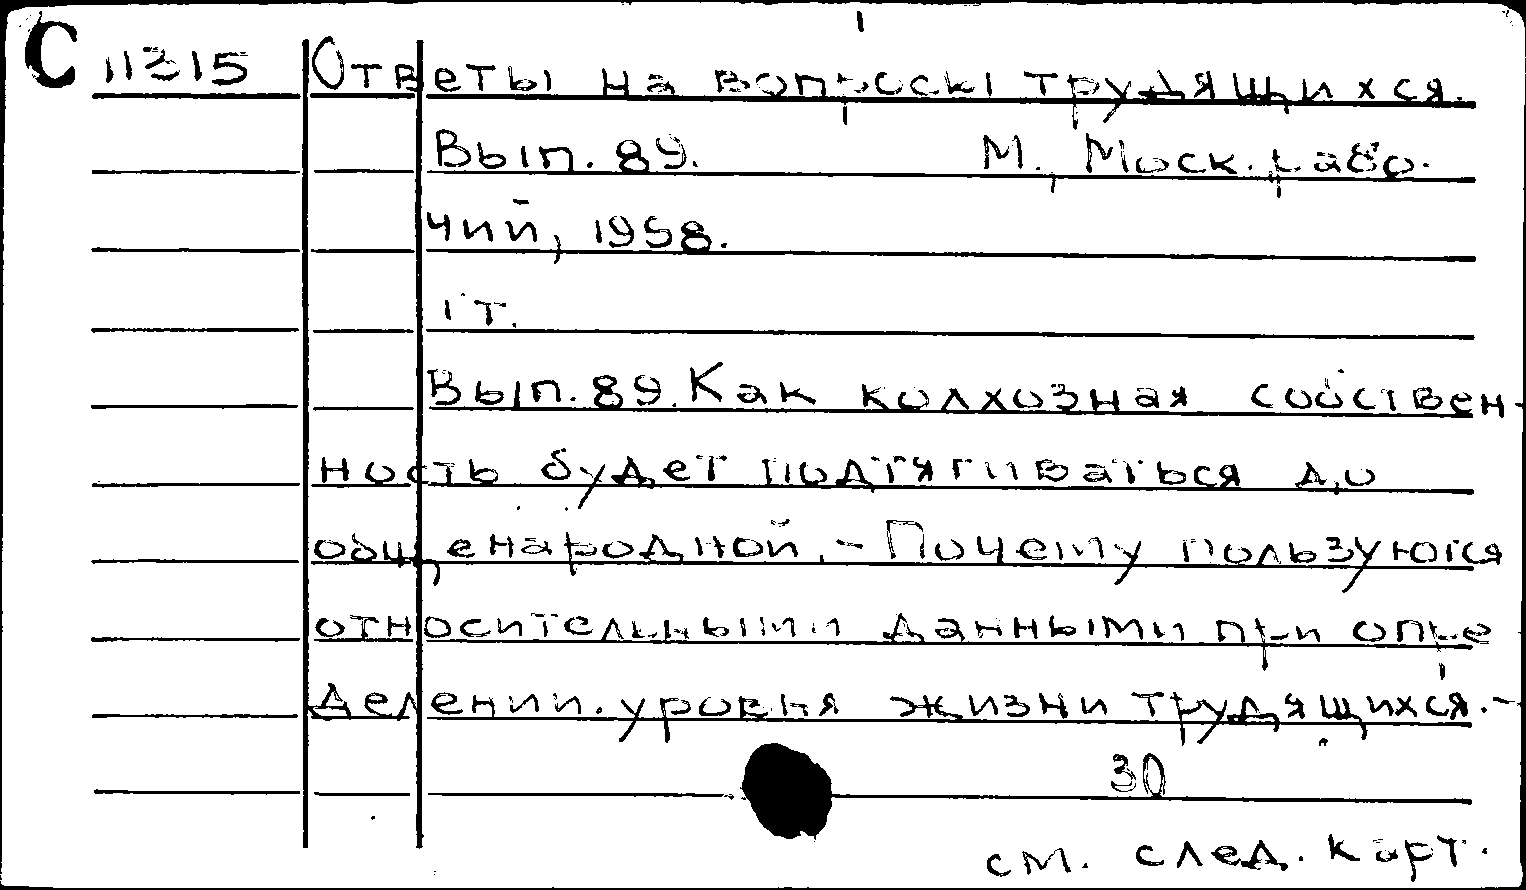 С 11315 Ответы на вопросы трудящихся.
Вып. 89. М., Моск. рабо-
чий, 1958.
1 т.
Вып. 89. Как колхозная собствен-
ность будет подтягиваться до
общенародной. - Почему пользуются
относительными данными при опре
делении уровня жизни трудящихся. -
30
см. след. карт.